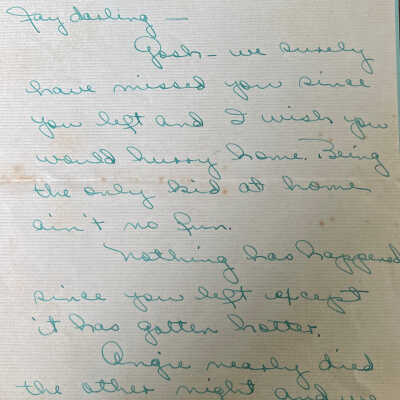 Fay darling —
Gosh — we surely
have missed you since
you left and I wish you
would hurry home. Being
the only kid at home
ain't no fun.
Nothing has happened
since you left except
it has gotten hotter.
Angie nearly died
the other night and we